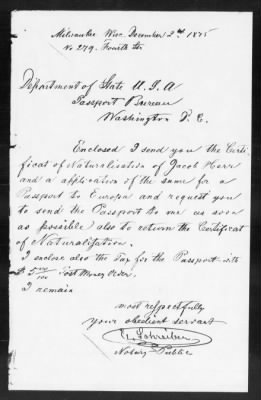 Milwaukee Wis. December 2nd 1875
No. 279. Fourth Str
Department of State U.S.A
Passport Bureau
Washington D.C.
Enclosed I send you the Certi-
ficat of Naturalisation of Jacob Herr
and a application of the same for a
Passport to Europa and request you
to send the Passport to me as soon
as possible, also to return the Certificat
of Naturalisation.
I enclose also the Tax for the Passport with
$ 5 00/100 Post Money Order.
I remain
most respectfully
your obedient servant
Schreiber
Notary Public